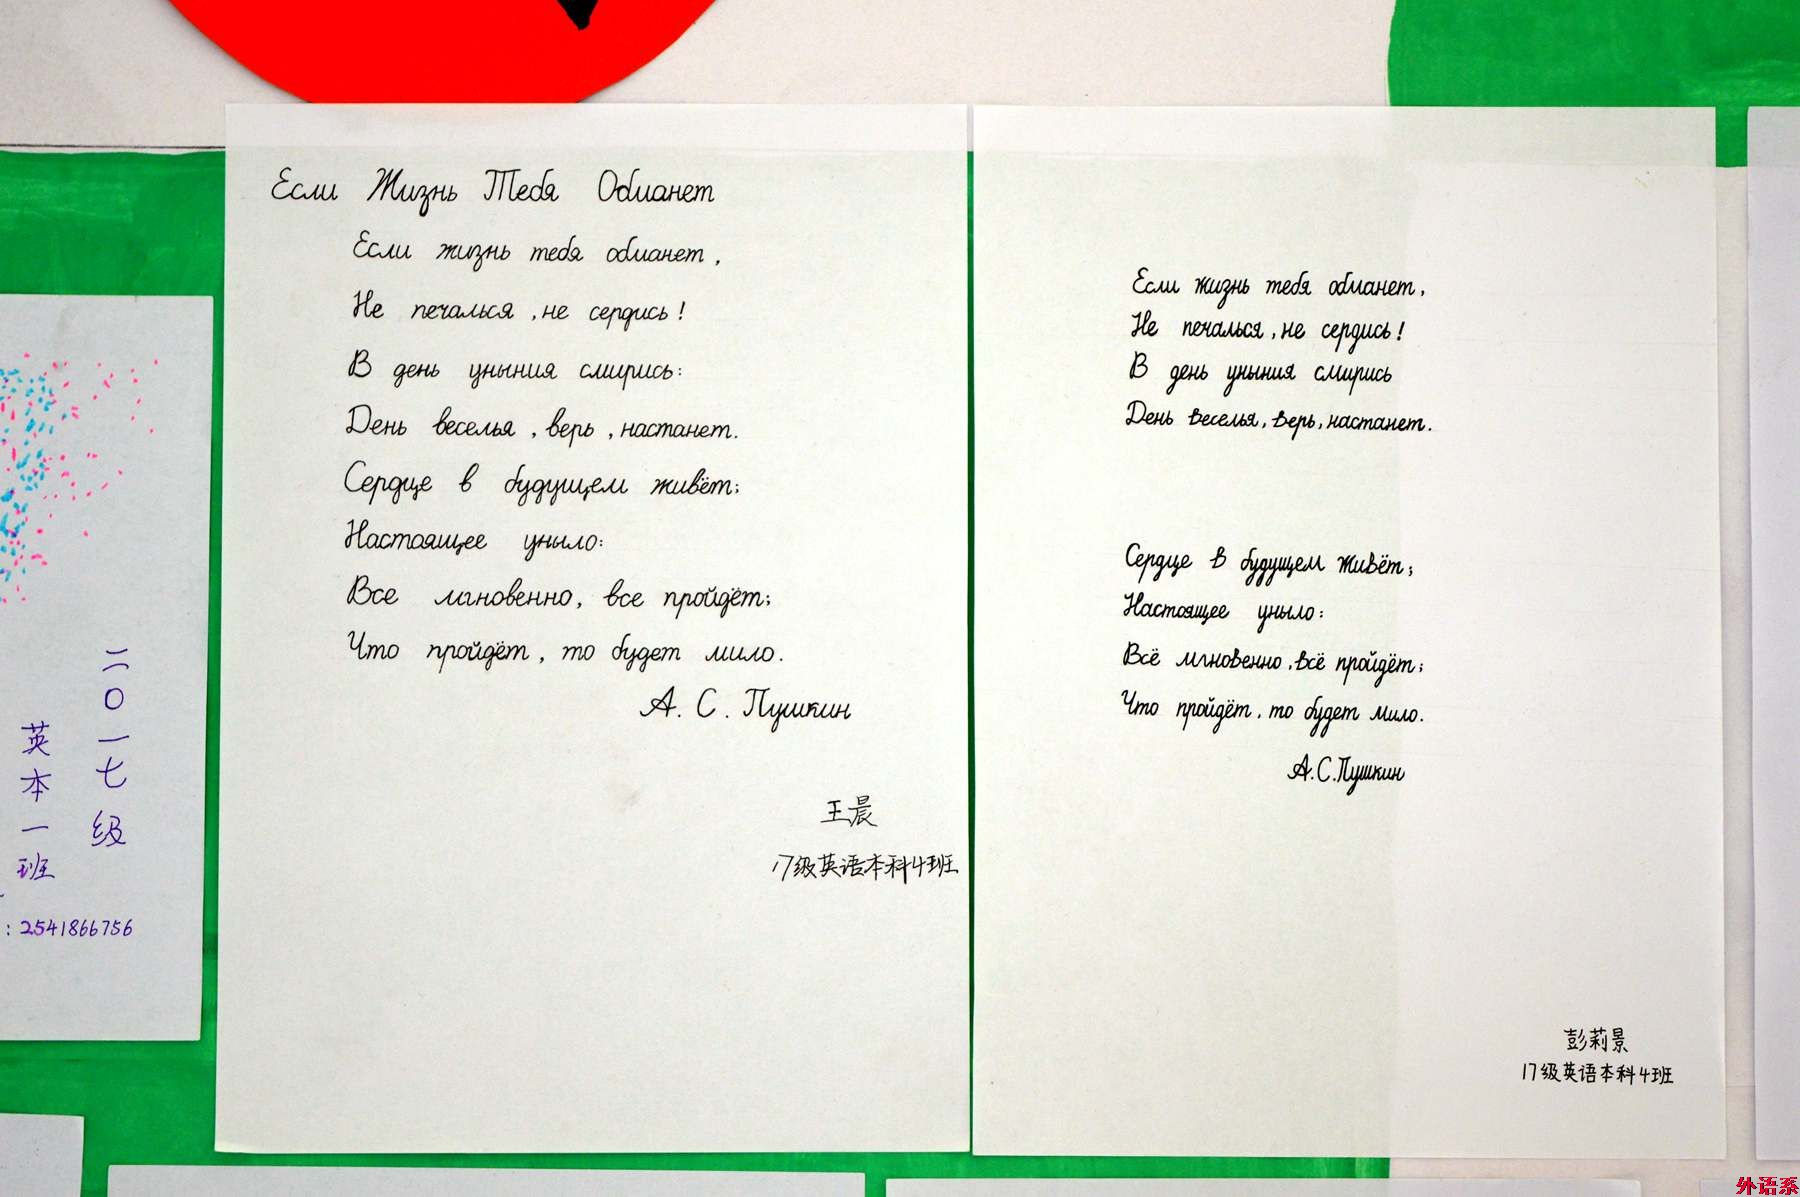 Если Жизнь Тебя Обманет
Если жизнь тебя обманет,
Не печалься, не сердись!
В день уныния смирись:
День веселья, верь, настанет.
Сердце в будущем живёт;
Настоящее уныло:
Все мгновенно, все пройдёт;
Что пройдёт, то будет мило.
А. С. Пушкин
王晨
17级英语本科4班
Если жизнь тебя обманет,
Не печалься, не сердись!
В день уныния смирись
День веселья, верь, настанет.
Сердце в будущем живёт;
Настоящее уныло:
Всё мгновенно, всё пройдёт;
Что пройдёт, то будет мило.
А.С.Пушкин
彭莉景
17级英语本科4班
二〇一七级
英本一班
: 2541866756
外语系